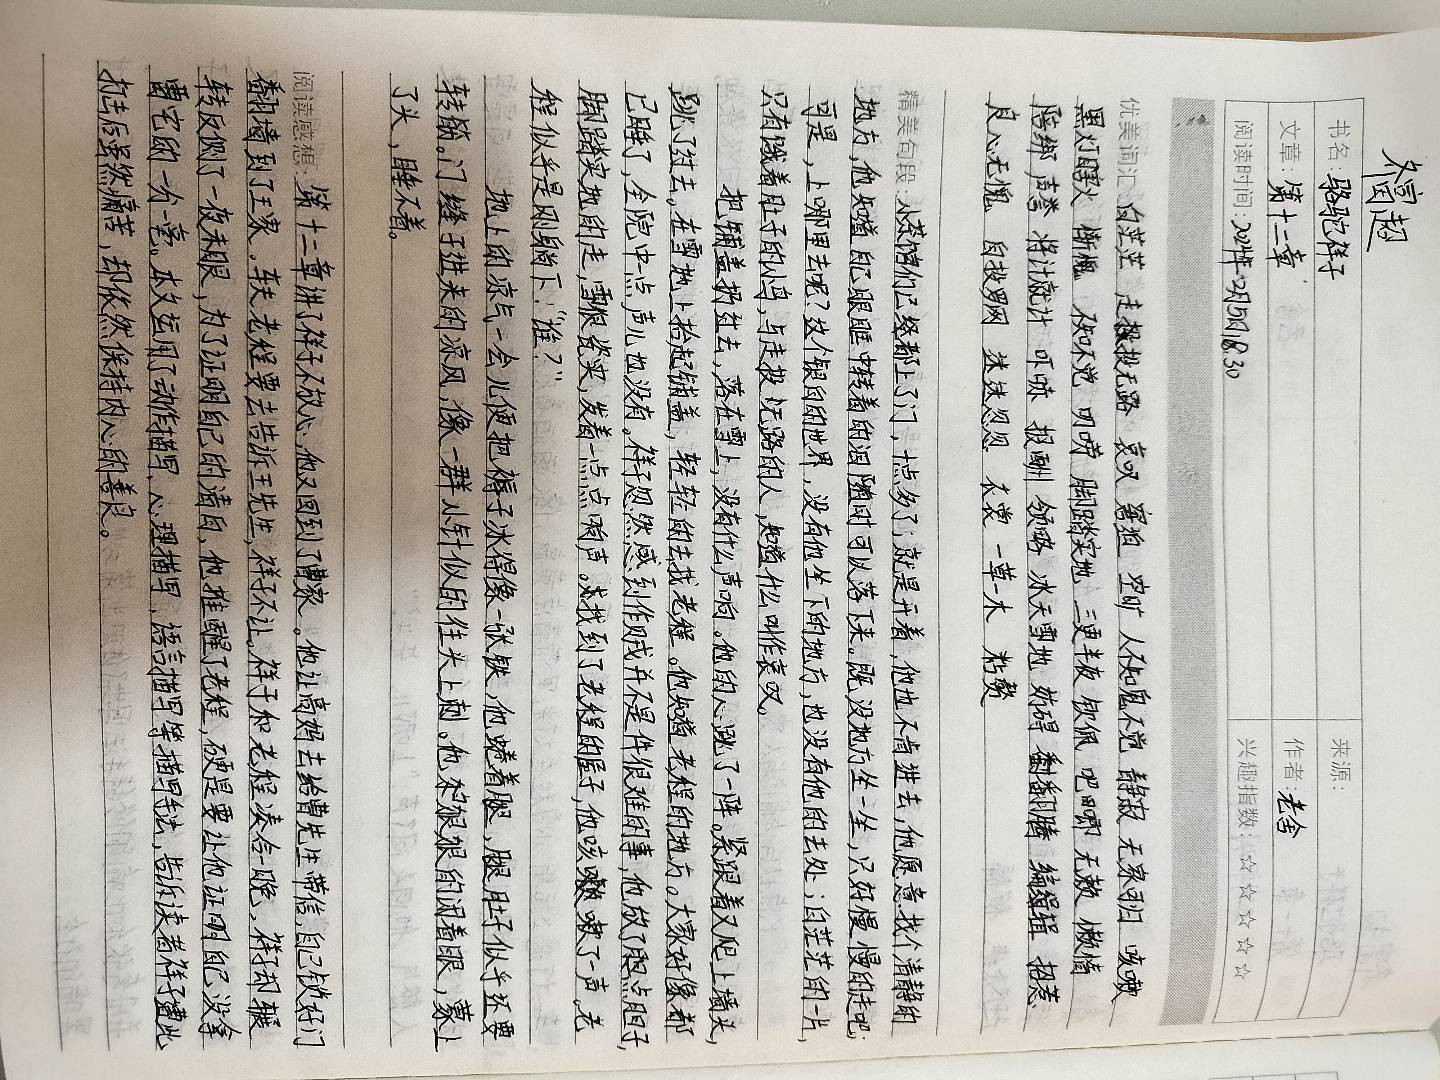 书名:骆驼祥子
来源:
文章:第十二章
作者:老舍
阅读时间:
兴趣指数:☆☆☆☆☆
优美词汇 白茫茫 走投无路 哀叹 空旷 人不知鬼不觉 静寂 无家可归 咳嗽
黑灯瞎火 惭愧 不知不觉 叨唠 脚踏实地 三更半夜 钦佩 吧唧 无赖 懒惰
陪绑 声誉 将计就计 吓唬 报酬 领略 冰天雪地 妨碍 翻腾 编辑 招惹
良心无愧 自投罗网 迷迷忽忽 衣裳 一草一木 粘赘
精美句段:小茶馆们已经都上了门,十点多了;就是开着,他也不肯进去,他愿意找个清静的
地方,他知道自己眼眶中转着的泪随时可以落下来。既没地方坐一坐,只好慢慢的走吧;
可是,上哪里去呢?这个银白的世界,没有他坐下的地方,也没有他的去处;白茫茫的一片,
只有饿着肚子的小鸟,与走投无路的人,知道什么叫作哀叹。
把铺盖扔过去,落在雪上,没有什么声响。他的心跳了一阵。紧跟着又爬上墙头,
跳了过去。在雪地上拾起铺盖,轻轻的去找老程。他知道老程的地方。大家好像都
已睡了,全院中一点声儿也没有。祥子忽然感到作贼并不是件很难的事,他放了点胆子,
脚踏实地的走,雪很瓷实,发着一点点响声。找到了老程的屋子,他咳嗽了一声。老
程似乎是刚躺下:“谁?”
地上的凉气一会儿便把褥子冰得像一张铁,他蜷着腿,腿肚子似乎还要
转筋。门缝子进来的凉风,像一群小针似的往头上刺。他狠狠的闭着眼,蒙上
了头,睡不着。
阅读感想:第十二章讲了祥子不放心,他又回到了曹家。他让高妈去给曹先生带信,自己锁好门
翻墙到了王家。车夫老程要去告诉王先生,祥子不让。祥子和老程凑合一晚,祥子却辗
转反侧了一夜未眠,为了证明自己的清白,他推醒了老程,硬是要让他证明自己没拿
曹宅的一分一毫。本文运用了动作描写,心理描写,语言描写等描写手法,告诉读者祥子遭此
打击后虽然痛苦,却依然保持内心的善良。